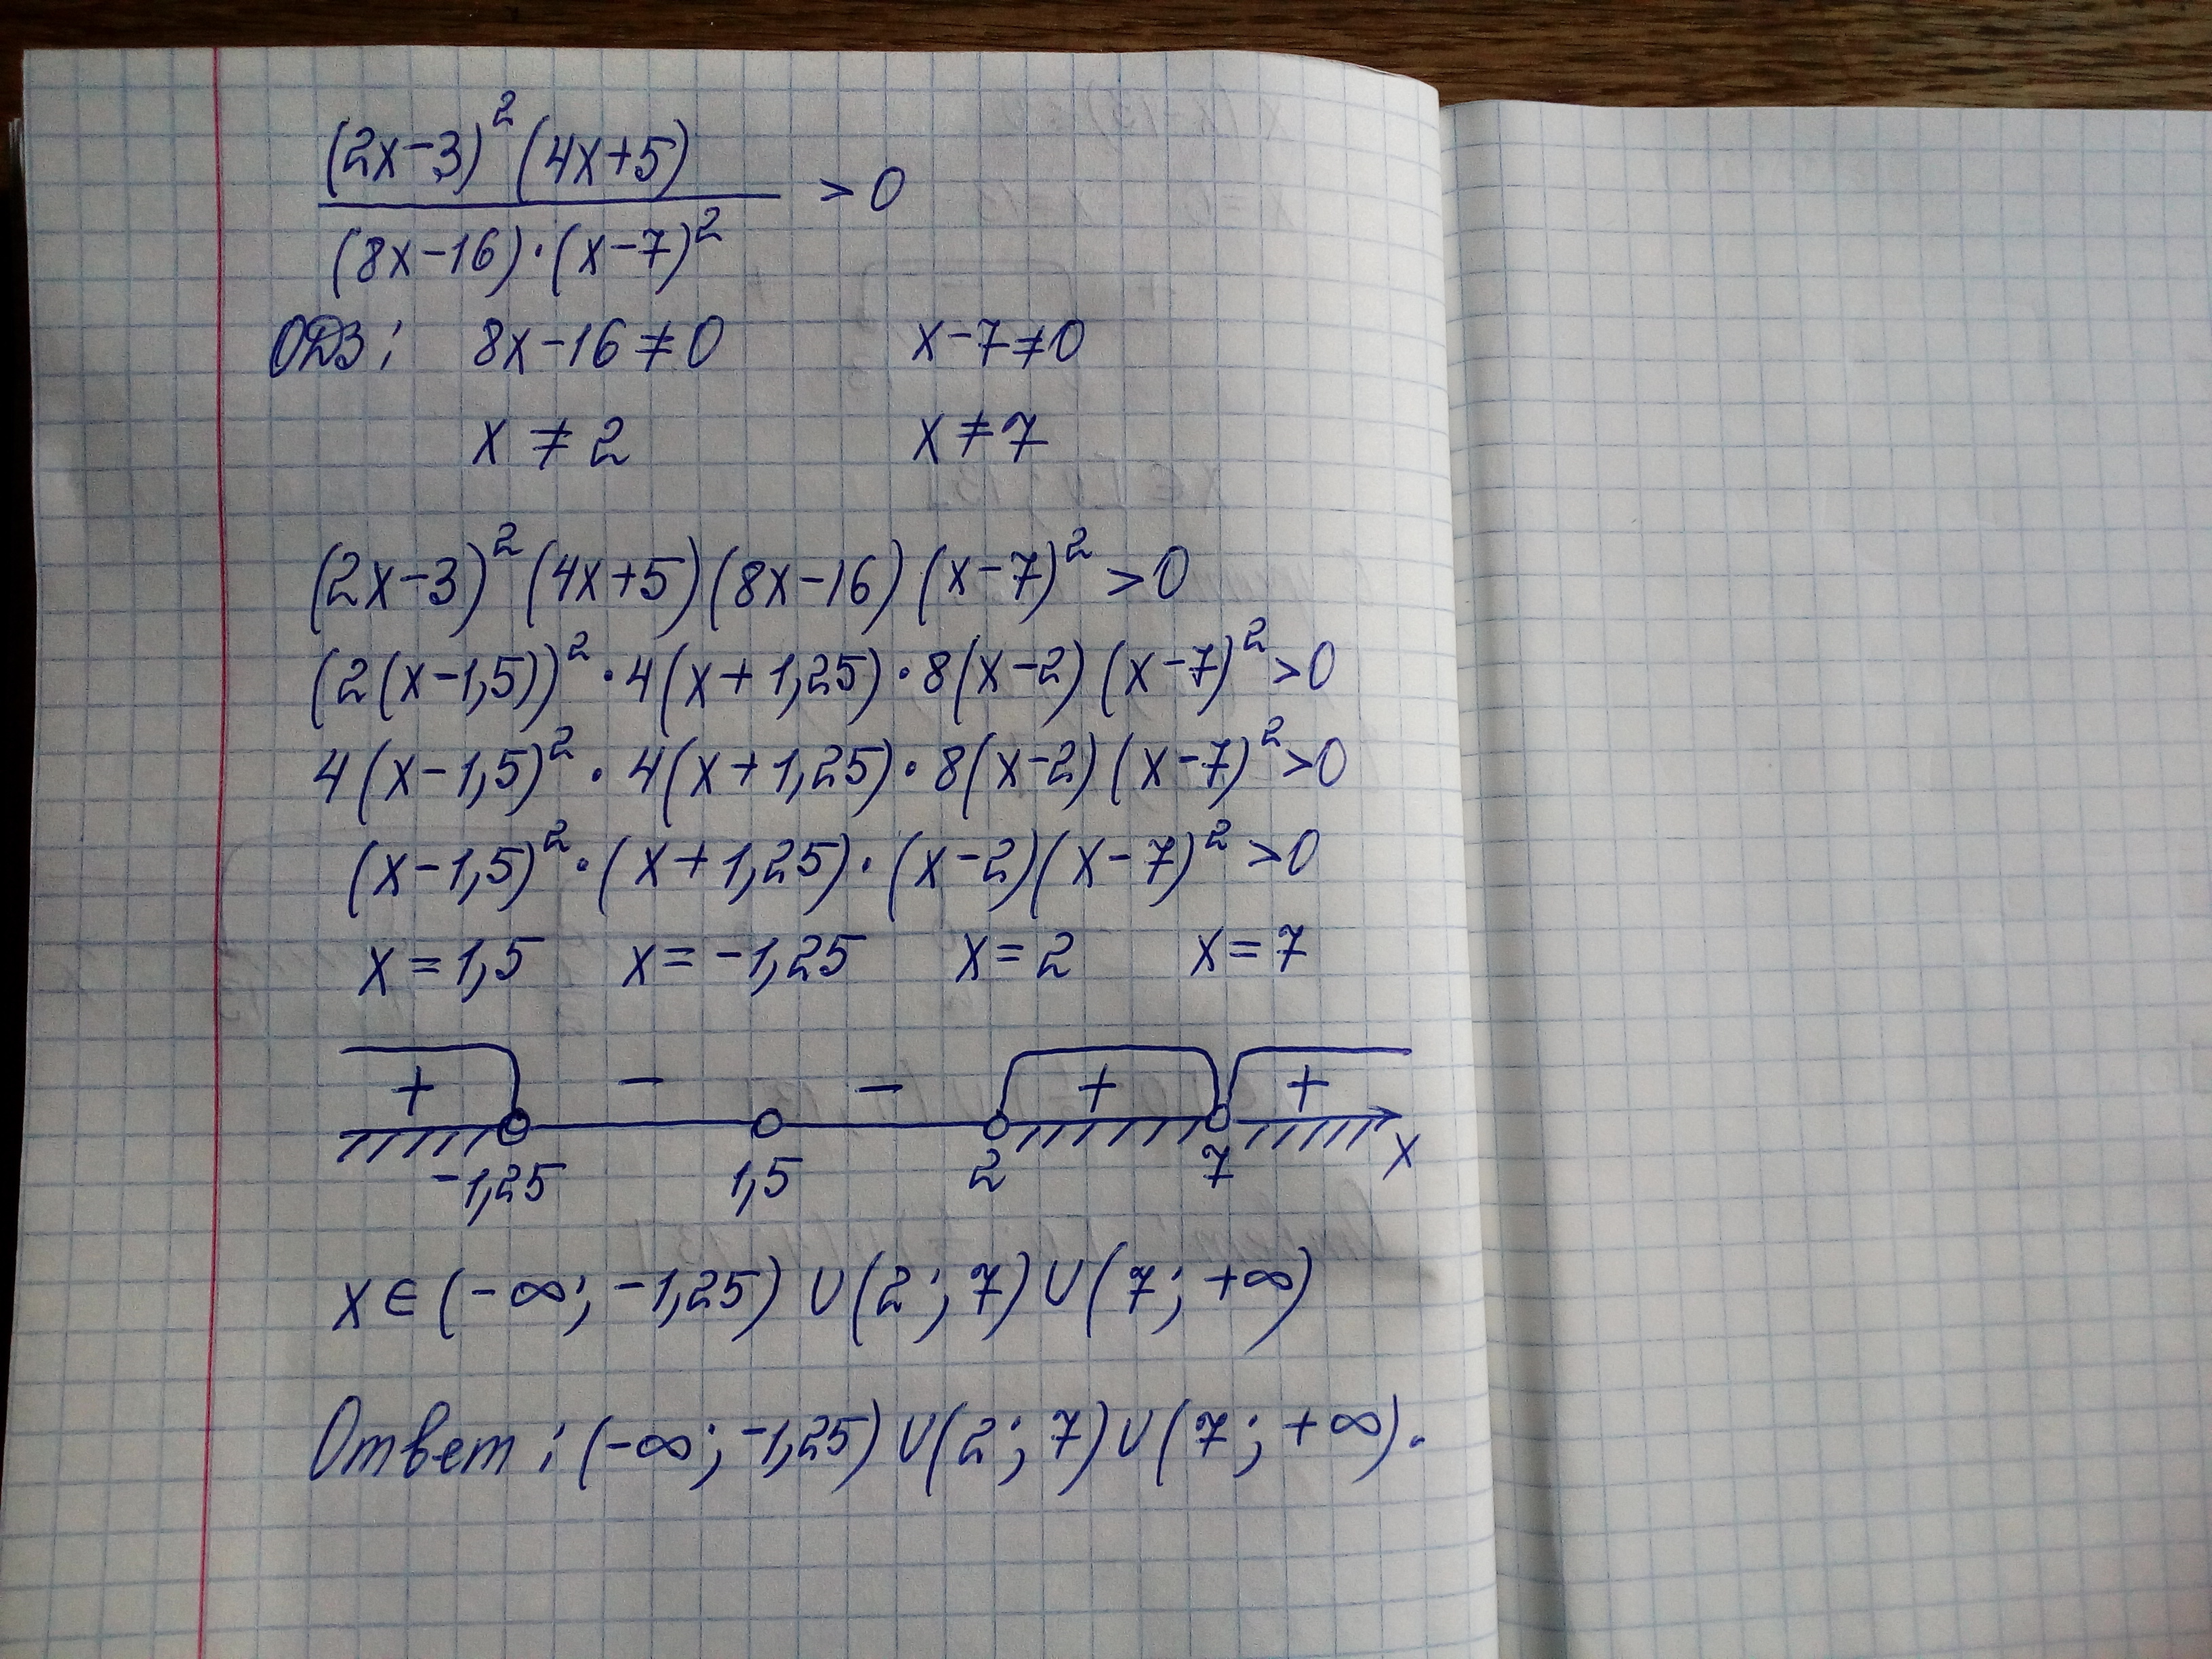 (2x-3)² (4x+5)
(8x-16)·(x-7)² >0
ОДЗ: 8x-16≠0 x-7≠0
x≠2 x≠7
(2x-3)² (4x+5)(8x-16)(x-7)² >0
(2(x-1,5))² ·4(x+1,25)·8(x-2)(x-7)² >0
4(x-1,5)² · 4(x+1,25)·8(x-2)(x-7)² >0
(x-1,5)² ·(x+1,25)·(x-2)(x-7)² >0
x=1,5 x=-1,25 x=2 x=7
+ - - + +
-1,25 1,5 2 7 x
x∈(-∞; -1,25)∪(2; 7)∪(7; +∞)
Ответ: (-∞; -1,25)∪(2; 7)∪(7; +∞).